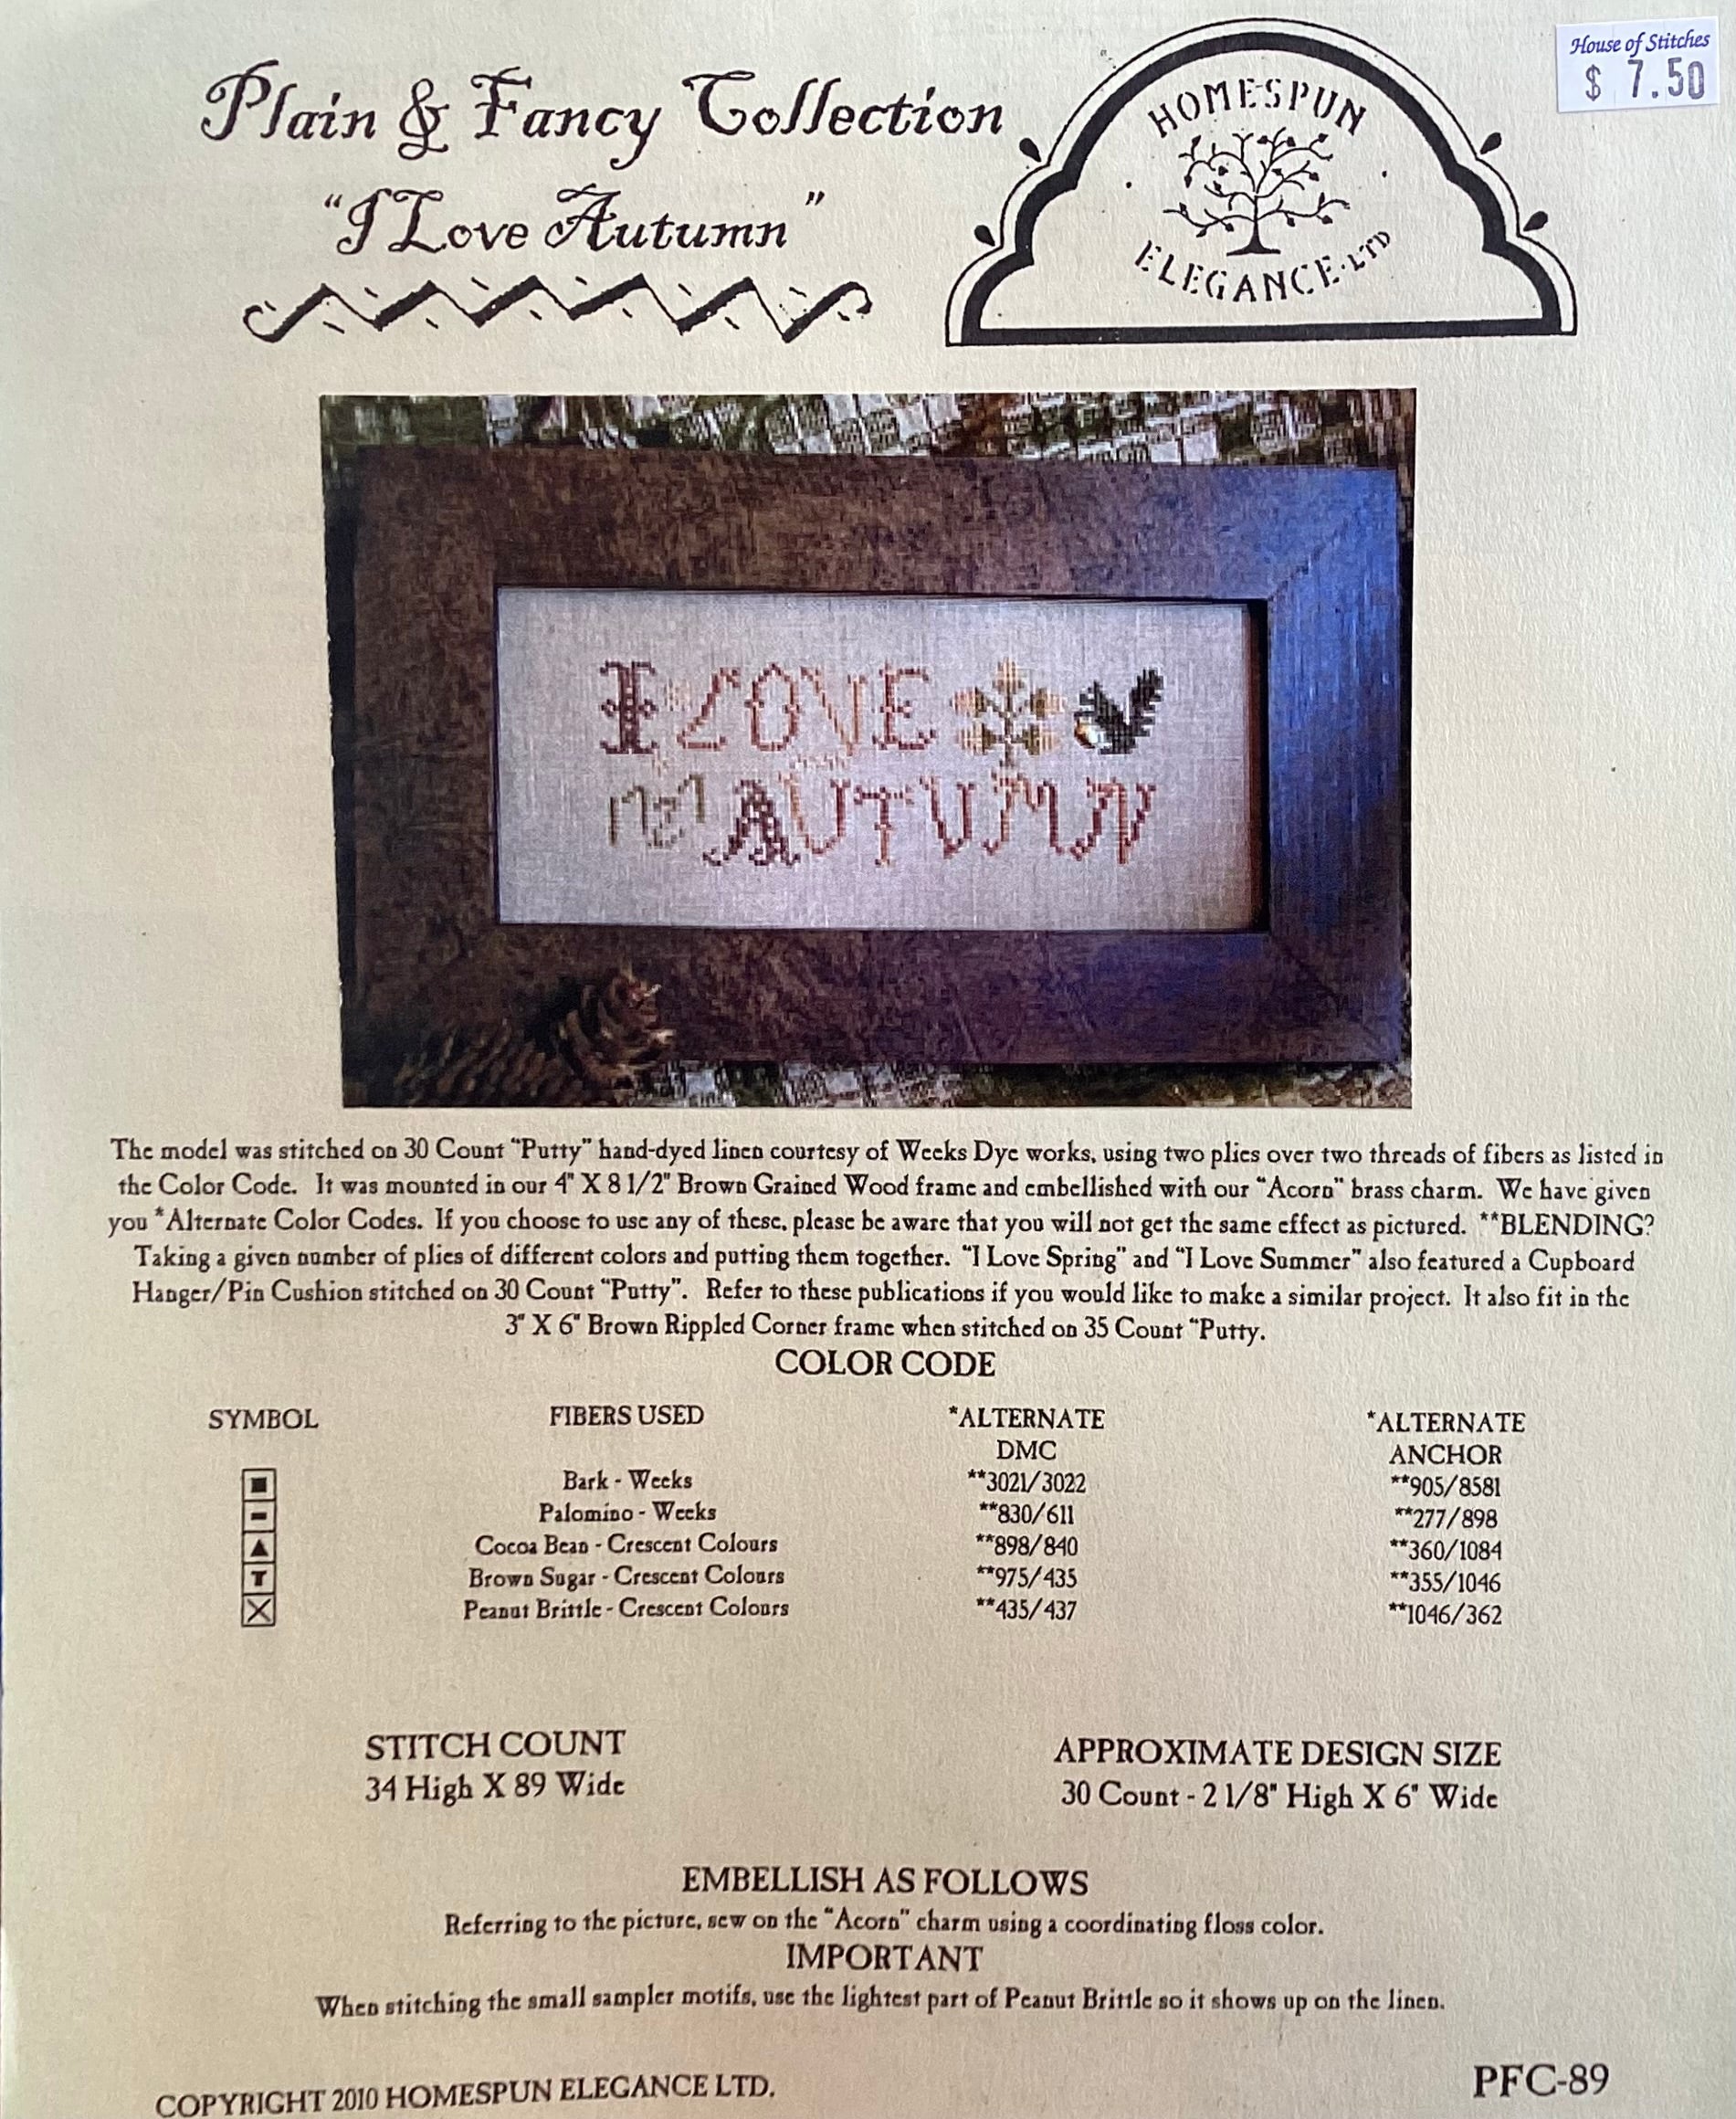 House of Stitches
$ 7.50
Plain & Fancy Collection
"I Love Autumn"
HOMESPUN
ELEGANCE·LTD
I LOVE
AUTUMN
The model was stitched on 30 Count "Putty" hand-dyed linen courtesy of Weeks Dye works, using two plies over two threads of fibers as listed in
the Color Code. It was mounted in our 4" X 8 1/2" Brown Grained Wood frame and embellished with our "Acorn" brass charm. We have given
you *Alternate Color Codes. If you choose to use any of these, please be aware that you will not get the same effect as pictured. **BLENDING?
Taking a given number of plies of different colors and putting them together. "I Love Spring" and "I Love Summer" also featured a Cupboard
Hanger/Pin Cushion stitched on 30 Count "Putty". Refer to these publications if you would like to make a similar project. It also fit in the
3" X 6" Brown Rippled Corner frame when stitched on 35 Count "Putty.
COLOR CODE
SYMBOL FIBERS USED *ALTERNATE DMC *ALTERNATE ANCHOR
Bark - Weeks **3021/3022 **905/8581
Palomino - Weeks **830/611 **277/898
Cocoa Bean - Crescent Colours **898/840 **360/1084
T Brown Sugar - Crescent Colours **975/435 **355/1046
Peanut Brittle - Crescent Colours **435/437 **1046/362
STITCH COUNT
34 High X 89 Wide
APPROXIMATE DESIGN SIZE
30 Count - 2 1/8" High X 6" Wide
EMBELLISH AS FOLLOWS
Referring to the picture, sew on the "Acorn" charm using a coordinating floss color.
IMPORTANT
When stitching the small sampler motifs, use the lightest part of Peanut Brittle so it shows up on the linen.
COPYRIGHT 2010 HOMESPUN ELEGANCE LTD.
PFC-89